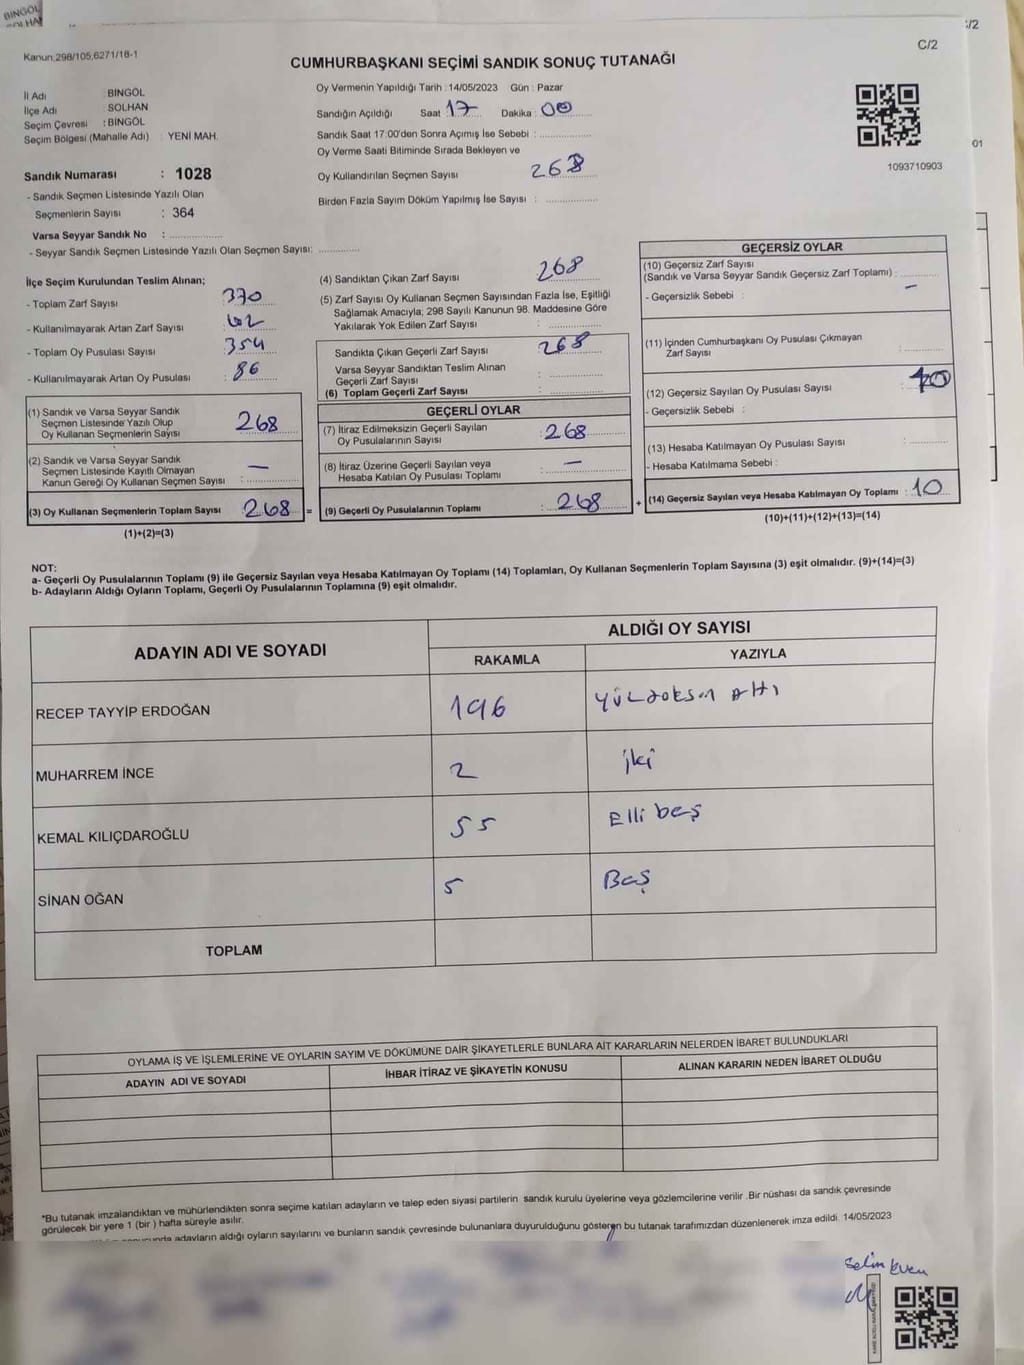 BİNGÖL
SOLHAN
:/2
C/2
Kanun:298/105,6271/18-1
CUMHURBAŞKANI SEÇİMİ SANDIK SONUÇ TUTANAĞI
İl Adı : BİNGÖL
İlçe Adı : SOLHAN
Seçim Çevresi : BİNGÖL
Seçim Bölgesi (Mahalle Adı) : YENİ MAH.
Oy Vermenin Yapıldığı Tarih : 14/05/2023 Gün : Pazar
Sandığın Açıldığı Saat : 17 Dakika : 00
Sandık Saat 17:00'den Sonra Açımış İse Sebebi :
Oy Verme Saati Bitiminde Sırada Bekleyen ve
Oy Kullandırılan Seçmen Sayısı 268
Birden Fazla Sayım Döküm Yapılmış İse Sayısı :
1093710903
01
Sandık Numarası : 1028
- Sandık Seçmen Listesinde Yazılı Olan
Seçmenlerin Sayısı : 364
Varsa Seyyar Sandık No :
- Seyyar Sandık Seçmen Listesinde Yazılı Olan Seçmen Sayısı:
İlçe Seçim Kurulundan Teslim Alınan;
- Toplam Zarf Sayısı : 370
- Kullanılmayarak Artan Zarf Sayısı : 102
- Toplam Oy Pusulası Sayısı : 354
- Kullanılmayarak Artan Oy Pusulası : 86
(1) Sandık ve Varsa Seyyar Sandık
Seçmen Listesinde Yazılı Olup
Oy Kullanan Seçmenlerin Sayısı 268
(2) Sandık ve Varsa Seyyar Sandık
Seçmen Listesinde Kayıtlı Olmayan
Kanun Gereği Oy Kullanan Seçmen Sayısı : —
(3) Oy Kullanan Seçmenlerin Toplam Sayısı : 268 =
(1)+(2)=(3)
(4) Sandıktan Çıkan Zarf Sayısı 268
(5) Zarf Sayısı Oy Kullanan Seçmen Sayısından Fazla İse, Eşitliği
Sağlamak Amacıyla; 298 Sayılı Kanunun 98. Maddesine Göre
Yakılarak Yok Edilen Zarf Sayısı :
Sandıkta Çıkan Geçerli Zarf Sayısı : 268
Varsa Seyyar Sandıktan Teslim Alınan
Geçerli Zarf Sayısı :
(6) Toplam Geçerli Zarf Sayısı :
GEÇERLİ OYLAR
(7) İtiraz Edilmeksizin Geçerli Sayılan
Oy Pusulalarının Sayısı : 268
(8) İtiraz Üzerine Geçerli Sayılan veya
Hesaba Katılan Oy Pusulası Toplamı : —
(9) Geçerli Oy Pusulalarının Toplamı : 268 +
GEÇERSİZ OYLAR
(10) Geçersiz Zarf Sayısı
(Sandık ve Varsa Seyyar Sandık Geçersiz Zarf Toplamı) :
- Geçersizlik Sebebi : —
(11) İçinden Cumhurbaşkanı Oy Pusulası Çıkmayan
Zarf Sayısı :
(12) Geçersiz Sayılan Oy Pusulası Sayısı : 10
- Geçersizlik Sebebi :
(13) Hesaba Katılmayan Oy Pusulası Sayısı :
- Hesaba Katılmama Sebebi :
(14) Geçersiz Sayılan veya Hesaba Katılmayan Oy Toplamı : 10
(10)+(11)+(12)+(13)=(14)
NOT:
a- Geçerli Oy Pusulalarının Toplamı (9) ile Geçersiz Sayılan veya Hesaba Katılmayan Oy Toplamı (14) Toplamları, Oy Kullanan Seçmenlerin Toplam Sayısına (3) eşit olmalıdır. (9)+(14)=(3)
b- Adayların Aldığı Oyların Toplamı, Geçerli Oy Pusulalarının Toplamına (9) eşit olmalıdır.
ADAYIN ADI VE SOYADI
ALDIĞI OY SAYISI
RAKAMLA YAZIYLA
RECEP TAYYİP ERDOĞAN 196 Yüzdoksan Altı
MUHARREM İNCE 2 iki
KEMAL KILIÇDAROĞLU 55 Elli beş
SİNAN OĞAN 5 Beş
TOPLAM
OYLAMA İŞ VE İŞLEMLERİNE VE OYLARIN SAYIM VE DÖKÜMÜNE DAİR ŞİKAYETLERLE BUNLARA AİT KARARLARIN NELERDEN İBARET BULUNDUKLARI
ADAYIN ADI VE SOYADI İHBAR İTİRAZ VE ŞİKAYETİN KONUSU ALINAN KARARIN NEDEN İBARET OLDUĞU
*Bu tutanak imzalandıktan ve mühürlendikten sonra seçime katılan adayların ve talep eden siyasi partilerin sandık kurulu üyelerine veya gözlemcilerine verilir .Bir nüshası da sandık çevresinde
görülecek bir yere 1 (bir ) hafta süreyle asılır.
adayların aldığı oyların sayılarını ve bunların sandık çevresinde bulunanlara duyurulduğunu gösteren bu tutanak tarafımızdan düzenlenerek imza edildi. 14/05/2023
Selim